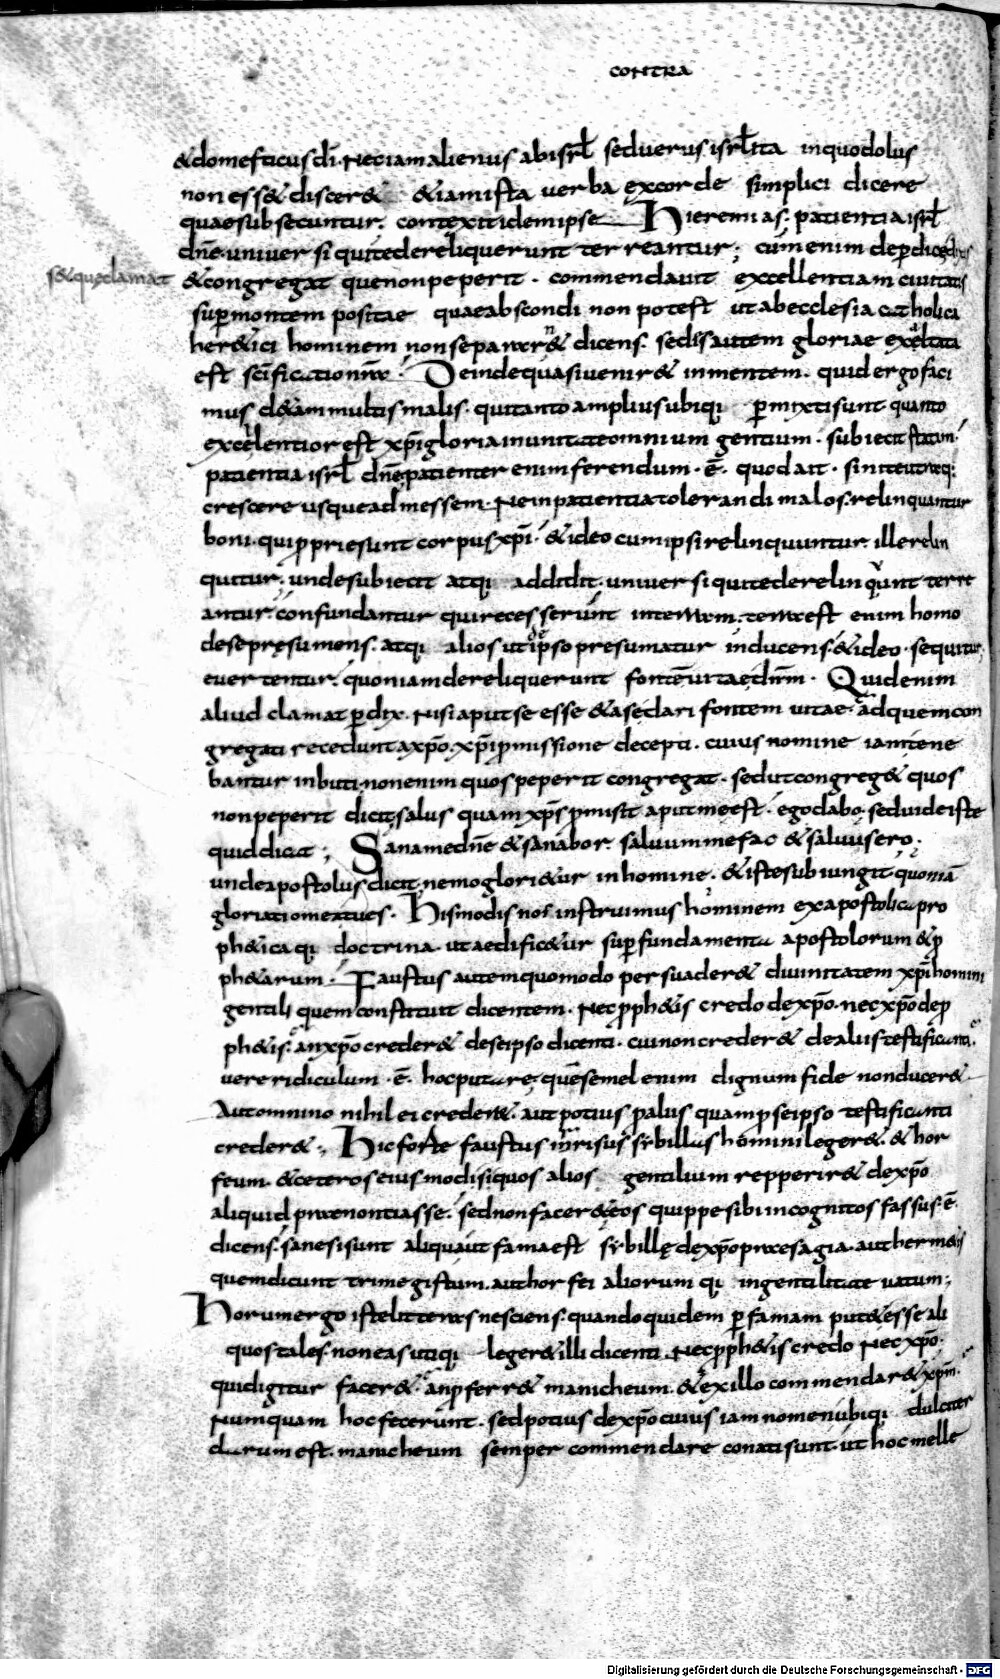 CONTRA
& domesticus dī. Nec iam alienus ab isrl̄ sed verus isrl̄ita in quo dolus
non ess& discer& & iam ista verba ex corde simplici dicere
quae subsecuntur. contexit idem ipse Hieremias. patientia isrl̄
dn̄e. universi qui te dereliquerunt terreantur; cum enim de perdice
s& que clamat & congregat que non peperit. commendavit excellentiam civitatis
sup montem positae quae abscondi non potest ut ab ecclesia catholica
her&ici hominem non separar& dicens. sedis autem gloriae exaltata
est scīficatio nr̄a. Deinde quasi venir& in mentem. quid ergo faci
mus d&am multis malis. qui tanto amplius ubiqi pmixti sunt quanto
excelentior est xp̄i gloria in unitate omnium gentium. subiecit statim
patientia isrl̄ dn̄e patienter enim ferendum. ē. quod ait. sinite utraq;
crescere usque ad messem. Ne inpatientia tolerandi malos. relinquantur
boni. qui pprie sunt corpus xp̄i. & ideo cum ipsi relincquuntur. ille relin
quitur. unde subiecit atqi addidit. universi qui te derelinqunt terre
antur. confundantur qui recesserunt in terram. terra est enim homo
de se presumens. atqi alios ut de ipso presumatur inducens. & ideo. sequitur
evertentur. quoniam dereliquerunt fontē vitae dn̄m. Quid enim
aliud clamat pdix. Nisi aput se esse & a se dari fontem vitae. ad quem con
gregati recedunt a xp̄o. xp̄i pmissione decepti. cuius nomine iam tene
bantur inbuti. non enim quos peperit congregat. sed ut congreg& quos
non peperit dicit. salus quam xp̄s pmisit aput me est. ego dabo. sed vide iste
quid dicat; Sana me dn̄e & sanabor. salvum me fac & salvus ero.
unde apostolus dicit. nemo glori&ur in homine. & iste subiungit. quoniā
gloriatio mea tu es. His modis nos instruimus hominem ex apostolica pro
ph&ica qi doctrina. ut aedific&ur sup fundamenta apostolorum & p
ph&arum. Faustus autem quomodo persuader& divinitatem xp̄i homini
gentili quem constituit dicentem. Nec pph&is credo de xp̄o. nec xp̄o de p
ph&is. an xp̄o creder& de se ipso dicenti. cui non creder& de aliis testificanti.
vere ridiculum. ē. hoc putare. quē semel enim dignum fide non ducer&.
Aut omnino nihil ei creder&. aut potius p alus quam p se ipso testificanti
creder&., Hic forte faustus inrisus sybillas homini leger&. & hor
feum. & ceteros eius modi si quos alios gentilium repperir& de xp̄o
aliquid praenontiasse. sed non facer& eos quippe sibi incognitos fassus. ē.
dicens. sane si sunt aliqua ut fama est sybillę de xp̄o praesagia. aut hermetis
quem dicunt trimegistum. aut horfei aliorum qi in gentilitate vatum;
Horum ergo iste litteras nesciens. quandoquidem p famam put& esse ali
quos tales. non eas utiqi leger& illi dicenti. Nec pph&is credo Nec xp̄o.
quid igitur facer&. an pferr& manicheum. & ex illo commendar& xp̄m.
Numquam hoc fecerunt. sed potius de xp̄o cuius iam nomen ubiqi dulciter
clarum est. manicheum semper commendare conati sunt. ut hoc melle
Digitalisierung gefördert durch die Deutsche Forschungsgemeinschaft - DFG